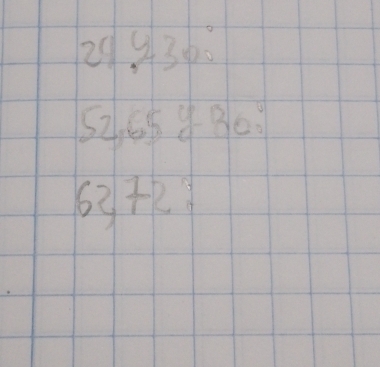 29 y 30:
52,65 y 80:
62,72: